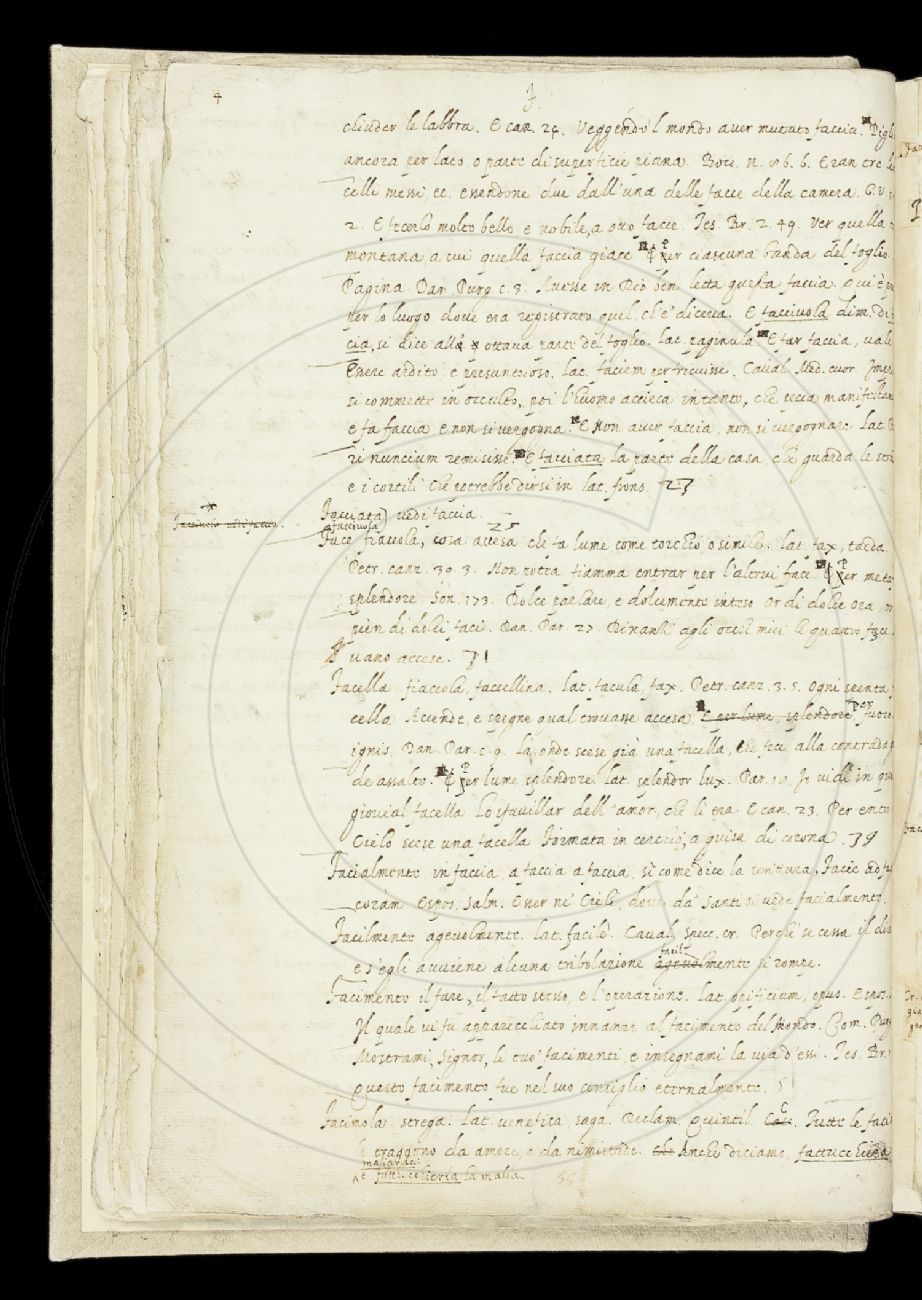 4
F.
chiuder le labbra. E can. 24. Veggendo'l mondo aver mutato faccia. Pigl
ancora per lato, o parte di superficie piana. Bocc. n. 86. 6. Eran tre le
celli messi, ec. essendone due dall'una delle facce della camera. G. V.
2. E fecerlo molto bello e nobile, a otto facce. Tes. Br. 2. 49. Ver quella
montana a cui quella faccia giace. E Per ciascuna banda del foglio.
Pagina. Dan. Purg. c. 3. Avesse in Dio ben letta questa faccia. Qui è
per lo luogo dove era registrato quel, ch'e' diceva. E facciuola dim. di
cia, si dice all' ottava parte del foglio. lat. paginula. E far faccia, vale
Essere ardito, e presuntuoso. lat. faciem perfricuisse. Caval. Med. cuor.
si commette in occulto, poi l'huomo accieca intanto, che pecca manifestam
e fa faccia e non si vergogna. E Non aver faccia, non si vergognare. Lat.
ri nuncium remisisse. E facciata la parte della casa che guarda le stra
e i cortili che potrebbe dirsi in lat. frons. 23
Facciata) vedi faccia.
facciuola 25
Face fiaccola, cosa accesa che fa lume, come torchio o simile. Lat. fax, taeda.
Petr. canz. 39. 3. Non potea fiamma entrar per l'altrui face. E Per meta
splendore Son. 173. Dolce parlare, e dolcemente inteso Or di dolce ora, or
pien di dolci faci. Dan. Par. 27. Dinanzi agli occhi miei le quattro face
vano accese. 31
Facella fiaccola, faccellina. Lat. facula, fax. Petr. canz. 3. 5. Ogni spenta
cella Accende, e spegne qual trovasse accesa. E per lume, splendore per fuoco
ignis. Dan. Par. c. 9. Là, onde scese già una facella, Che fece alla contrada
de assalto. E Per lume splendore. lat. splendor lux. Par. 18. Io vidi in que
giovial facella Lo sfavillar dell'amor, che lì era. E can. 23. Per entro
Cielo scese una facella Formata in cerchio, a guisa di corona. 39
Facialmente in faccia, a faccia a faccia, sì come dice la scrittura, Facie ad fa
coram Espos. Salm. Esser ne' Cieli, dove da' Santi si vede facialmente.
Facilmente agevolmente. lat. facile. Caval. Specc. cr. Perchè se cessa il
e s'egli avviene alcuna tribolazione agevolmente facil si rompe.
Facimento il fare, il fatto stesso, e l'operazione. Lat. opificium, opus. Espos.
Il quale vi fu apparecchiato innanzi al facimento del Mondo. Com. Purg
Mostrami, Signor, li tuo' facimenti e insegnami la via d'essi. Tes. Br.
Questo facimento fue nel suo consiglio eternalmente. 51
Facimola strega. Lat. venefica, saga. Declam. Quintil. C. Tutte le faci
e traggono da amore, o da nemistade. Anche diciamo, fattucchiera
maliarda:
e fattucchieria la malia.